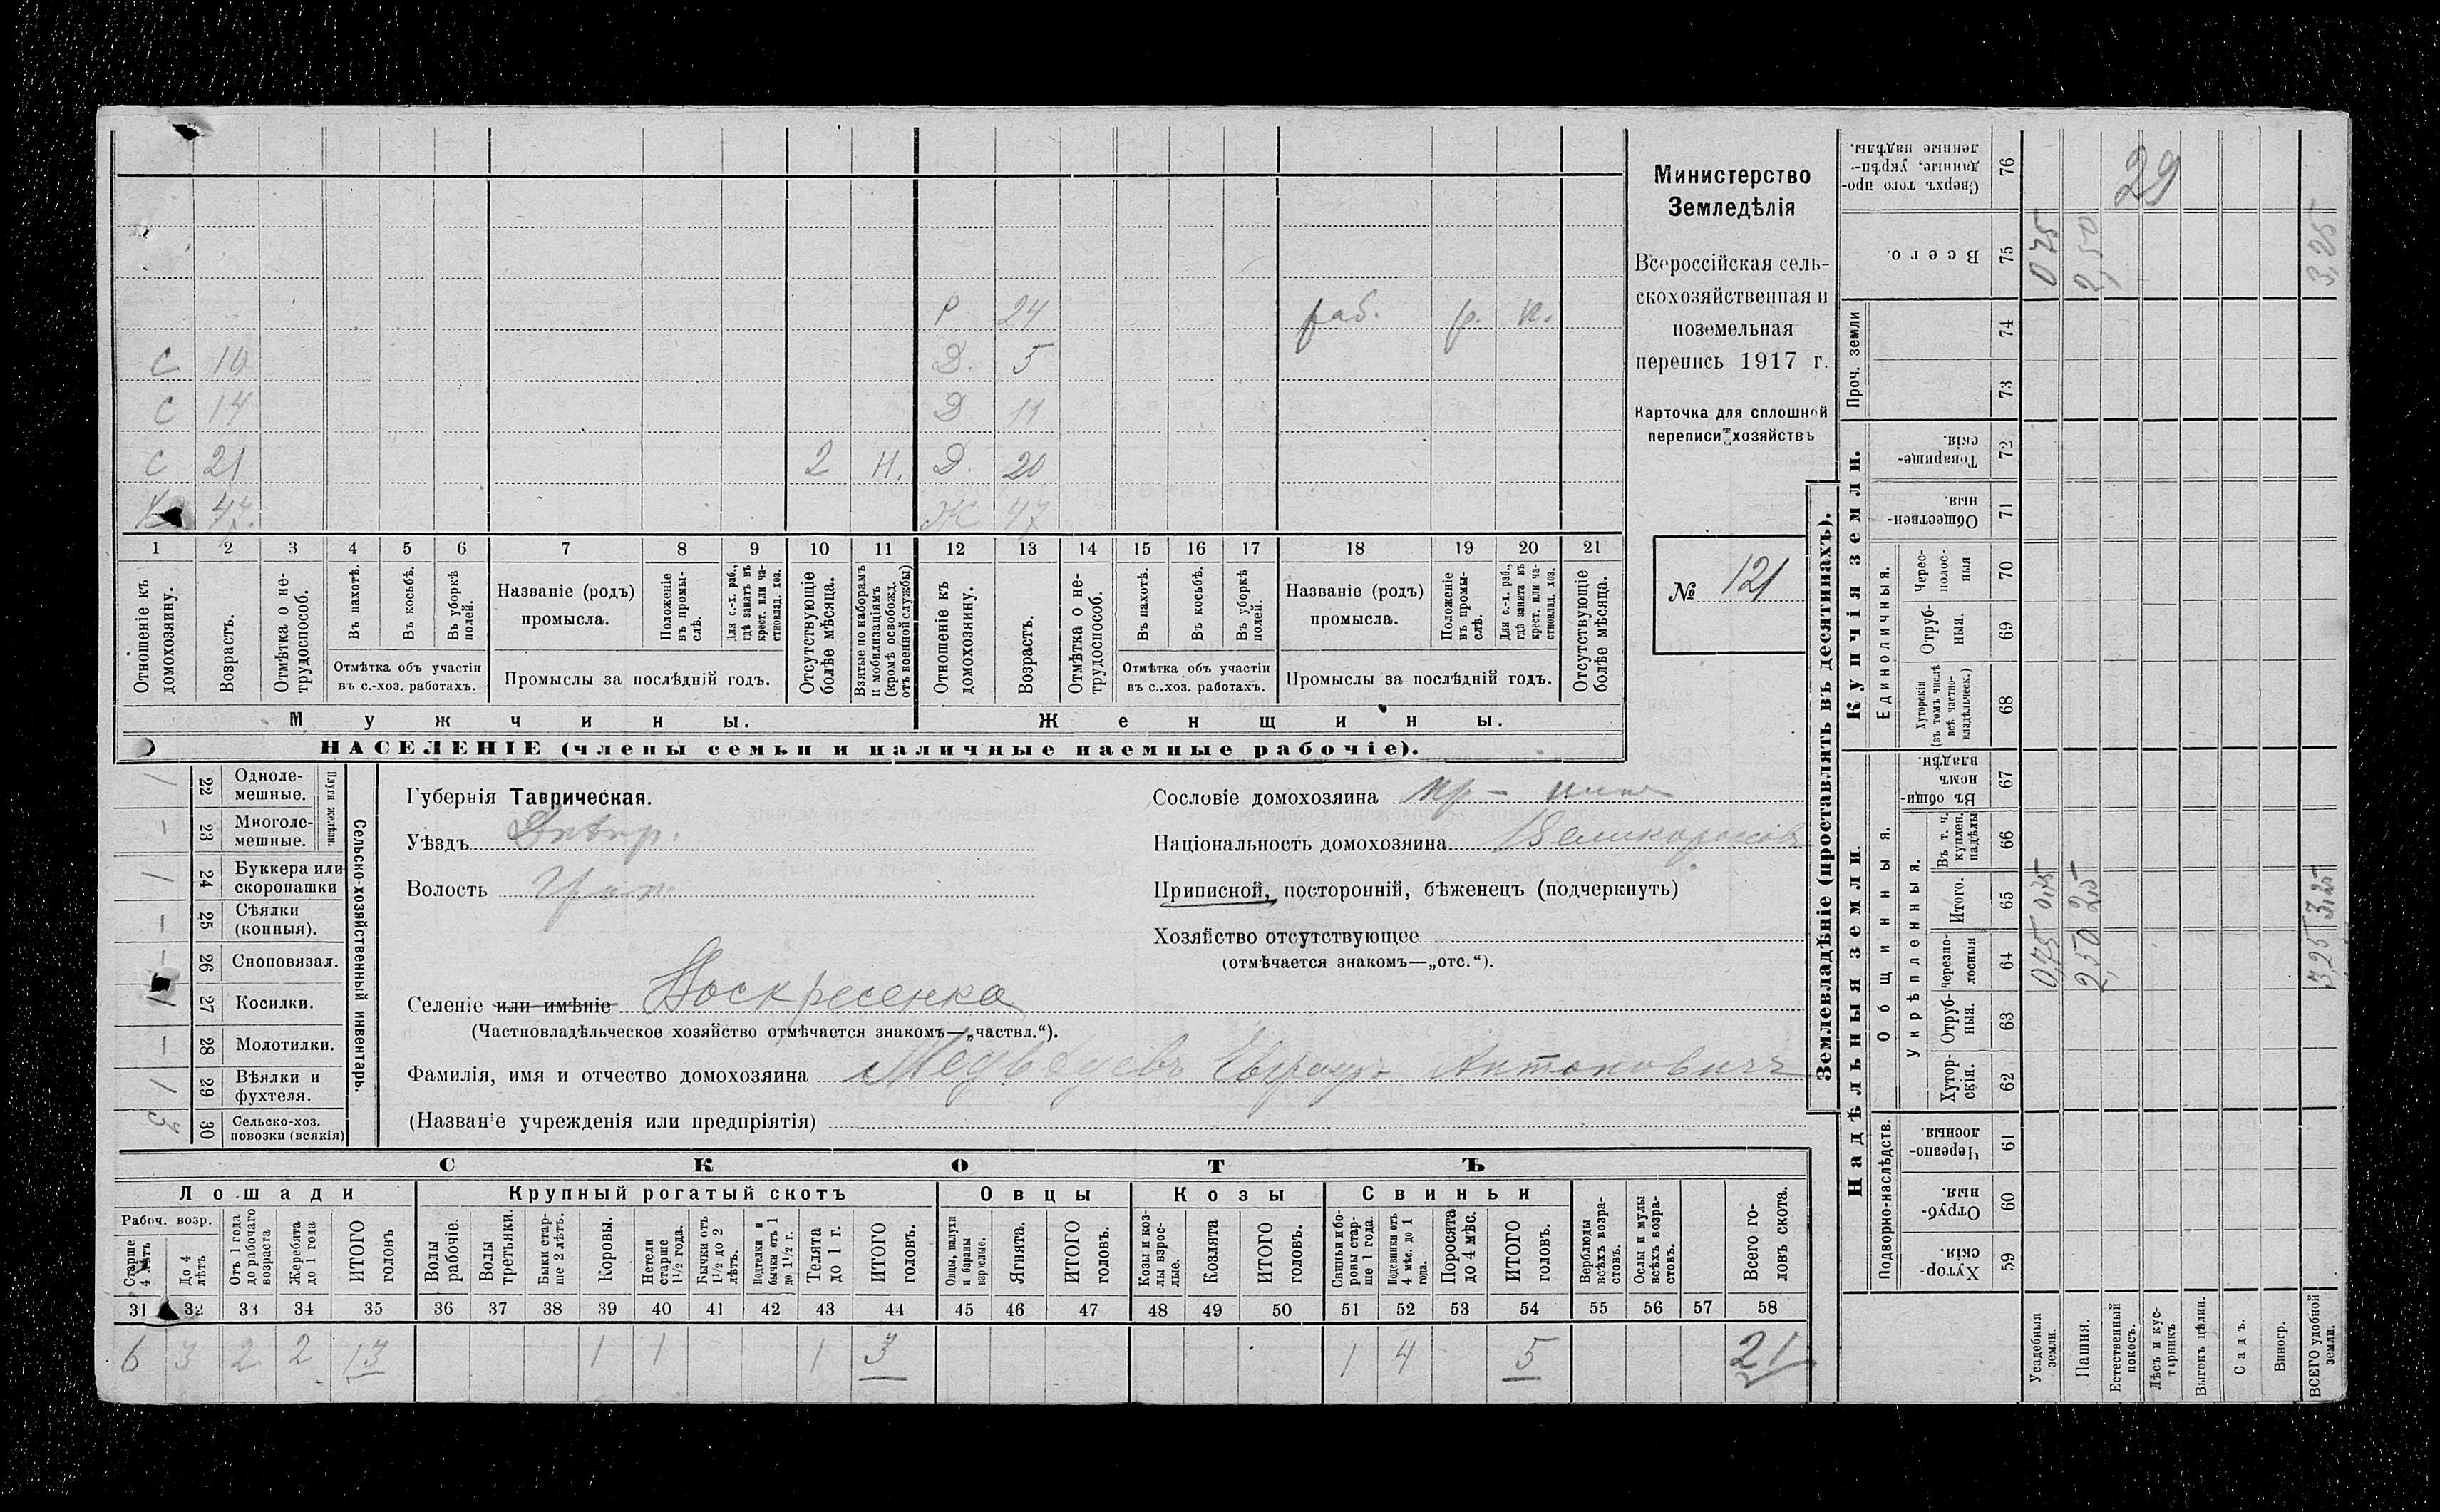 Министерство
Земледѣлія
Всероссійская сель-
скохозяйственная и
поземельная
перепись 1917 г.
Карточка для сплошной
переписи хозяйствъ
№ 121
Р 24 раб. р. к.
С 10 Д. 5
С 14 Д 11
С 21 2 Н. Д. 20
47. Ж 47
1 2 3 4 5 6 7 8 9 10 11 12 13 14 15 16 17 18 19 20 21
Отношеніе къ домохозяину.
Возрастъ.
Отмѣтка о не-трудоспособ.
Въ пахотѣ.
Въ косьбѣ.
Въ уборкѣ полей.
Отмѣтка объ участіи
въ с.-хоз. работахъ.
Названіе (родъ)
промысла.
Положеніе въ промы-слѣ.
Для с.-х. раб., гдѣ занятъ въ крест. или ча-стновлад. хоз.
Промыслы за послѣдній годъ.
Отсутствующіе болѣе мѣсяца.
Взятые по наборамъ и мобилизаціямъ (кромѣ освобожд. отъ военной службы)
Отношеніе къ домохозяину.
Возрастъ.
Отмѣтка о не-трудоспособ.
Въ пахотѣ.
Въ косьбѣ.
Въ уборкѣ полей.
Отмѣтка объ участіи
въ с.-хоз. работахъ.
Названіе (родъ)
промысла.
Положеніе въ промы-слѣ.
Для с.-х. раб., гдѣ занята въ крест. или ча-стновлад. хоз.
Промыслы за послѣдній годъ.
Отсутствующіе болѣе мѣсяца.
Мужчины. Женщины.
НАСЕЛЕНІЕ (члены семьи и наличные наемные рабочіе).
Сельско-хозяйственный инвентарь.
Плуги желѣзн.
1 22 Одноле-мешные.
– 23 Многоле-мешные.
1 24 Буккера или скоропашки
– 25 Сѣялки (конныя).
– 26 Сноповязал.
1 27 Косилки.
– 28 Молотилки.
1 29 Вѣялки и фухтеля.
3 30 Сельско-хоз. повозки (всякія)
Губернія Таврическая.
Уѣздъ Днѣпр.
Волость
Селеніе или имѣніе Воскресенка
(Частновладѣльческое хозяйство отмѣчается знакомъ—„частвл.“).
Фамилія, имя и отчество домохозяина Медвѣдевъ Антоновичъ
(Названіе учрежденія или предпріятія)
Сословіе домохозяина
Національность домохозяина Великороссъ
Приписной, посторонній, бѣженецъ (подчеркнуть)
Хозяйство отсутствующее
(отмѣчается знакомъ—„отс.“).
СКОТЪ
Лошади Крупный рогатый скотъ Овцы Козы Свиньи
Рабоч. возр.
Старше 4 лѣтъ
До 4 лѣтъ
Отъ 1 года до рабочаго возраста
Жеребята до 1 года
ИТОГО головъ
Волы рабочіе.
Волы третьяки.
Быки стар-ше 2 лѣтъ.
Коровы.
Нетели старше 1½ года.
Бычки отъ 1½ до 2 лѣтъ.
Подтелки и бычки отъ 1 до 1½ г.
Телята до 1 г.
ИТОГО головъ.
Овцы, валухи и бараны взрослые.
Ягнята.
ИТОГО головъ.
Козы и коз-лы взрос-лые.
Козлята
ИТОГО головъ.
Свиньи и бо-ровы стар-ше 1 года.
Подсвинки отъ 4 мѣс. до 1 года.
Поросята до 4 мѣс.
ИТОГО головъ.
Верблюды всѣхъ возра-стовъ.
Ослы и мулы всѣхъ возра-стовъ.
Всего го-ловъ скота.
31 32 33 34 35 36 37 38 39 40 41 42 43 44 45 46 47 48 49 50 51 52 53 54 55 56 57 58
6 3 2 2 13 1 1 1 3 1 4 5 21
Землевладѣніе (проставлять въ десятинахъ).
Надѣльныя земли. Купчія земли.
Подворно-наслѣдств.
Общинныя.
Укрѣпленныя.
Единоличныя.
Проч. земли
Хутор-скія 59
Отруб-ныя. 60
Черезпо-лосныя 61
Хутор-скія. 62
Отруб-ныя. 63
Черезпо-лосныя 64
Итого. 65
Въ т. ч. куплен. надѣлы 66
Въ общин-номъ владѣн. 67
Хуторскія (въ томъ числѣ всѣ частно-владѣльческ.) 68
Отруб-ныя. 69
Черес-полос-ныя 70
Обществен-ныя. 71
Товарище-скія. 72
73
74
Всего. 75
Сверхъ того про-данные, укрѣп-ленные надѣлы. 76
Усадебныя земли. 0,75 0,75 0 75
Пашня. 2,50 2,5 2,50
Естественный покосъ.
Лѣсъ и кус-тарникъ
Выгонъ цѣлин.
Садъ.
Виногр.
ВСЕГО удобной земли. 3,25 3,25 3,25
29